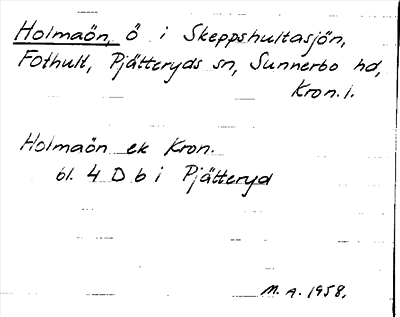 Holmaön, ö i Skeppshultasjön,
Fothult, Pjätteryds sn, Sunnerbo hd,
Kron. l.
Holmaön ek Kron.
bl. 4 D b i Pjätteryd
M. A. 1958.